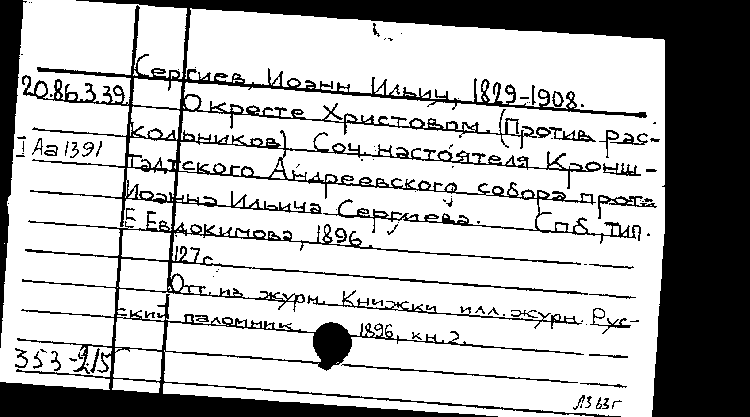 Сергиев, Иоанн Ильич, 1829-1908.
20.86.3.39 О кресте Христовом. (Против рас-
кольников). Соч. настоятеля Кронш-
I Аа 1391
тадтского Андреевского собора прот.
Иоанна Ильича Сергиева. Спб., тип.
Е. Евдокимова, 1896.
127 с.
Отт. из журн. Книжки илл. журн. Рус-
ский паломник. 1896, кн. 2.
353-215